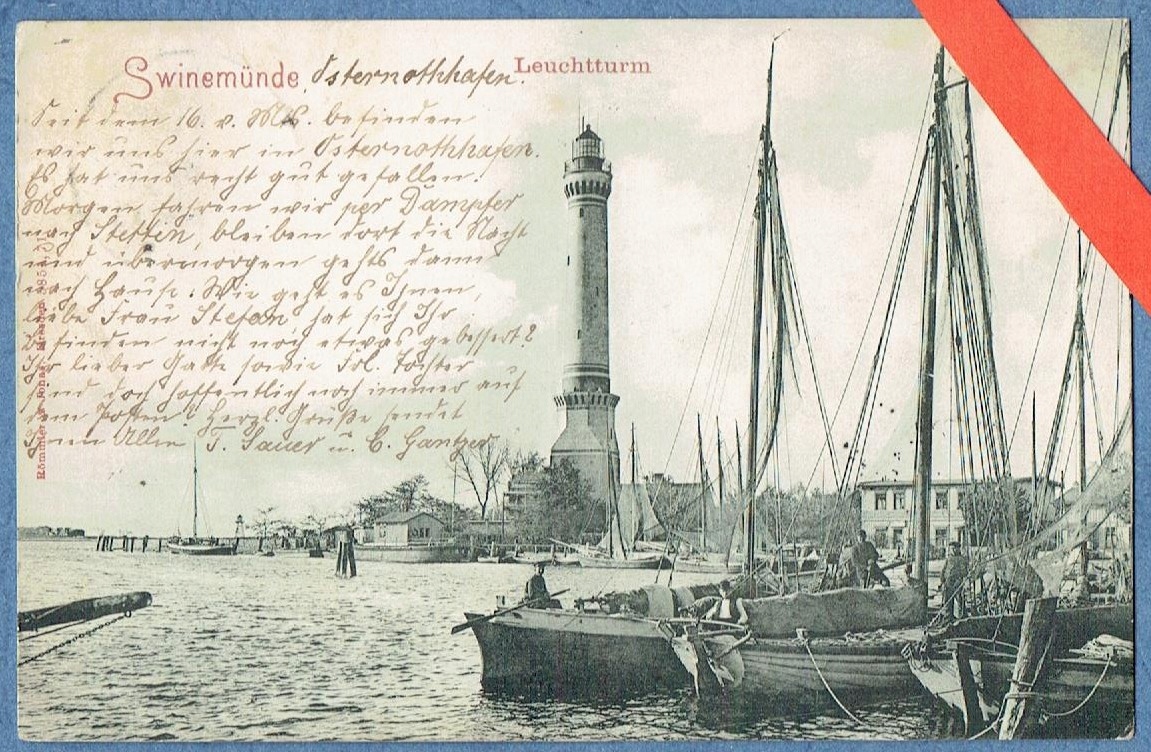 Swinemünde, Osternothhafen. Leuchtturm
Seit dem 16. v. Mts. befinden
wir uns hier in Osternothhafen.
Es hat uns recht gut gefallen!
Morgen fahren wir per Dampfer
nach Stettin, bleiben dort die Nacht
und übermorgen gehts dann
nach Hause. Wie geht es Ihnen,
liebe Frau Stefan, hat sich Ihr
Befinden nicht noch etwas gebessert?
Ihr lieber Gatte sowie Frl. Tochter
sind doch hoffentlich noch immer auf
dem Posten? Herzl. Grüße sendet
Ihnen Allen F. Sauer u. E. Gantzer
Römmler & Jonas, Dresden